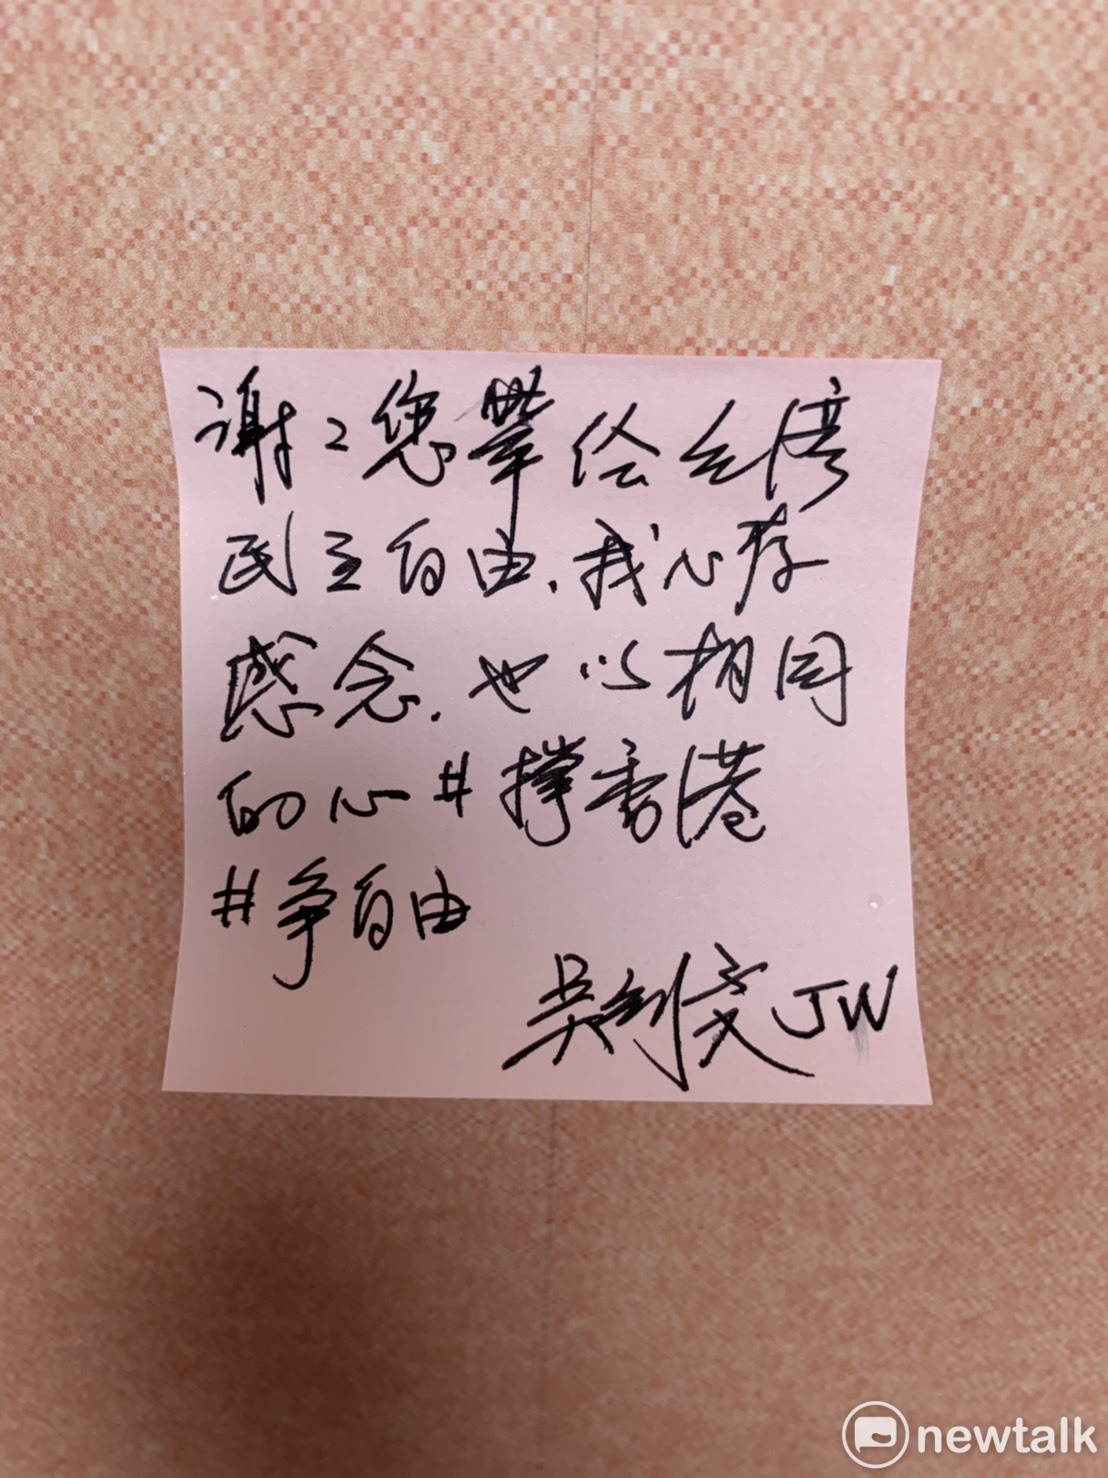 谢々您擘绘台湾
民主自由.我心存
感念.也以相同
的心#撐香港
#争自由
吳釗燮JW
newtalk